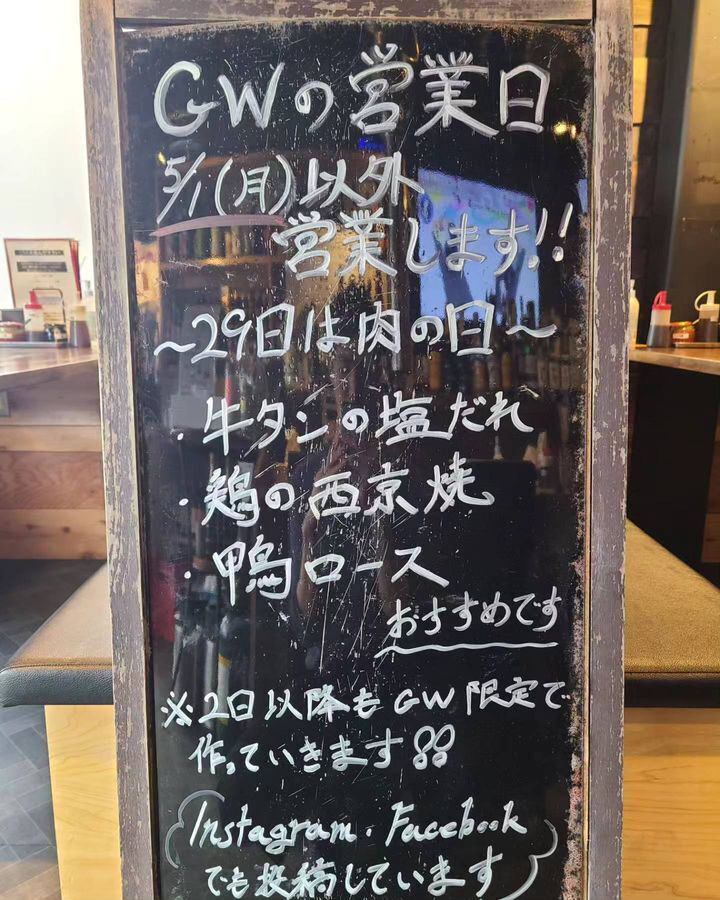 GWの営業日
5/1(月)以外
営業します!!
～29日は肉の日～
・牛タンの塩だれ
・鶏の西京焼
・鴨ロース
おすすめです
※2日以降もGW限定で
作っていきます!!
(Instagram・Facebook
でも投稿しています)